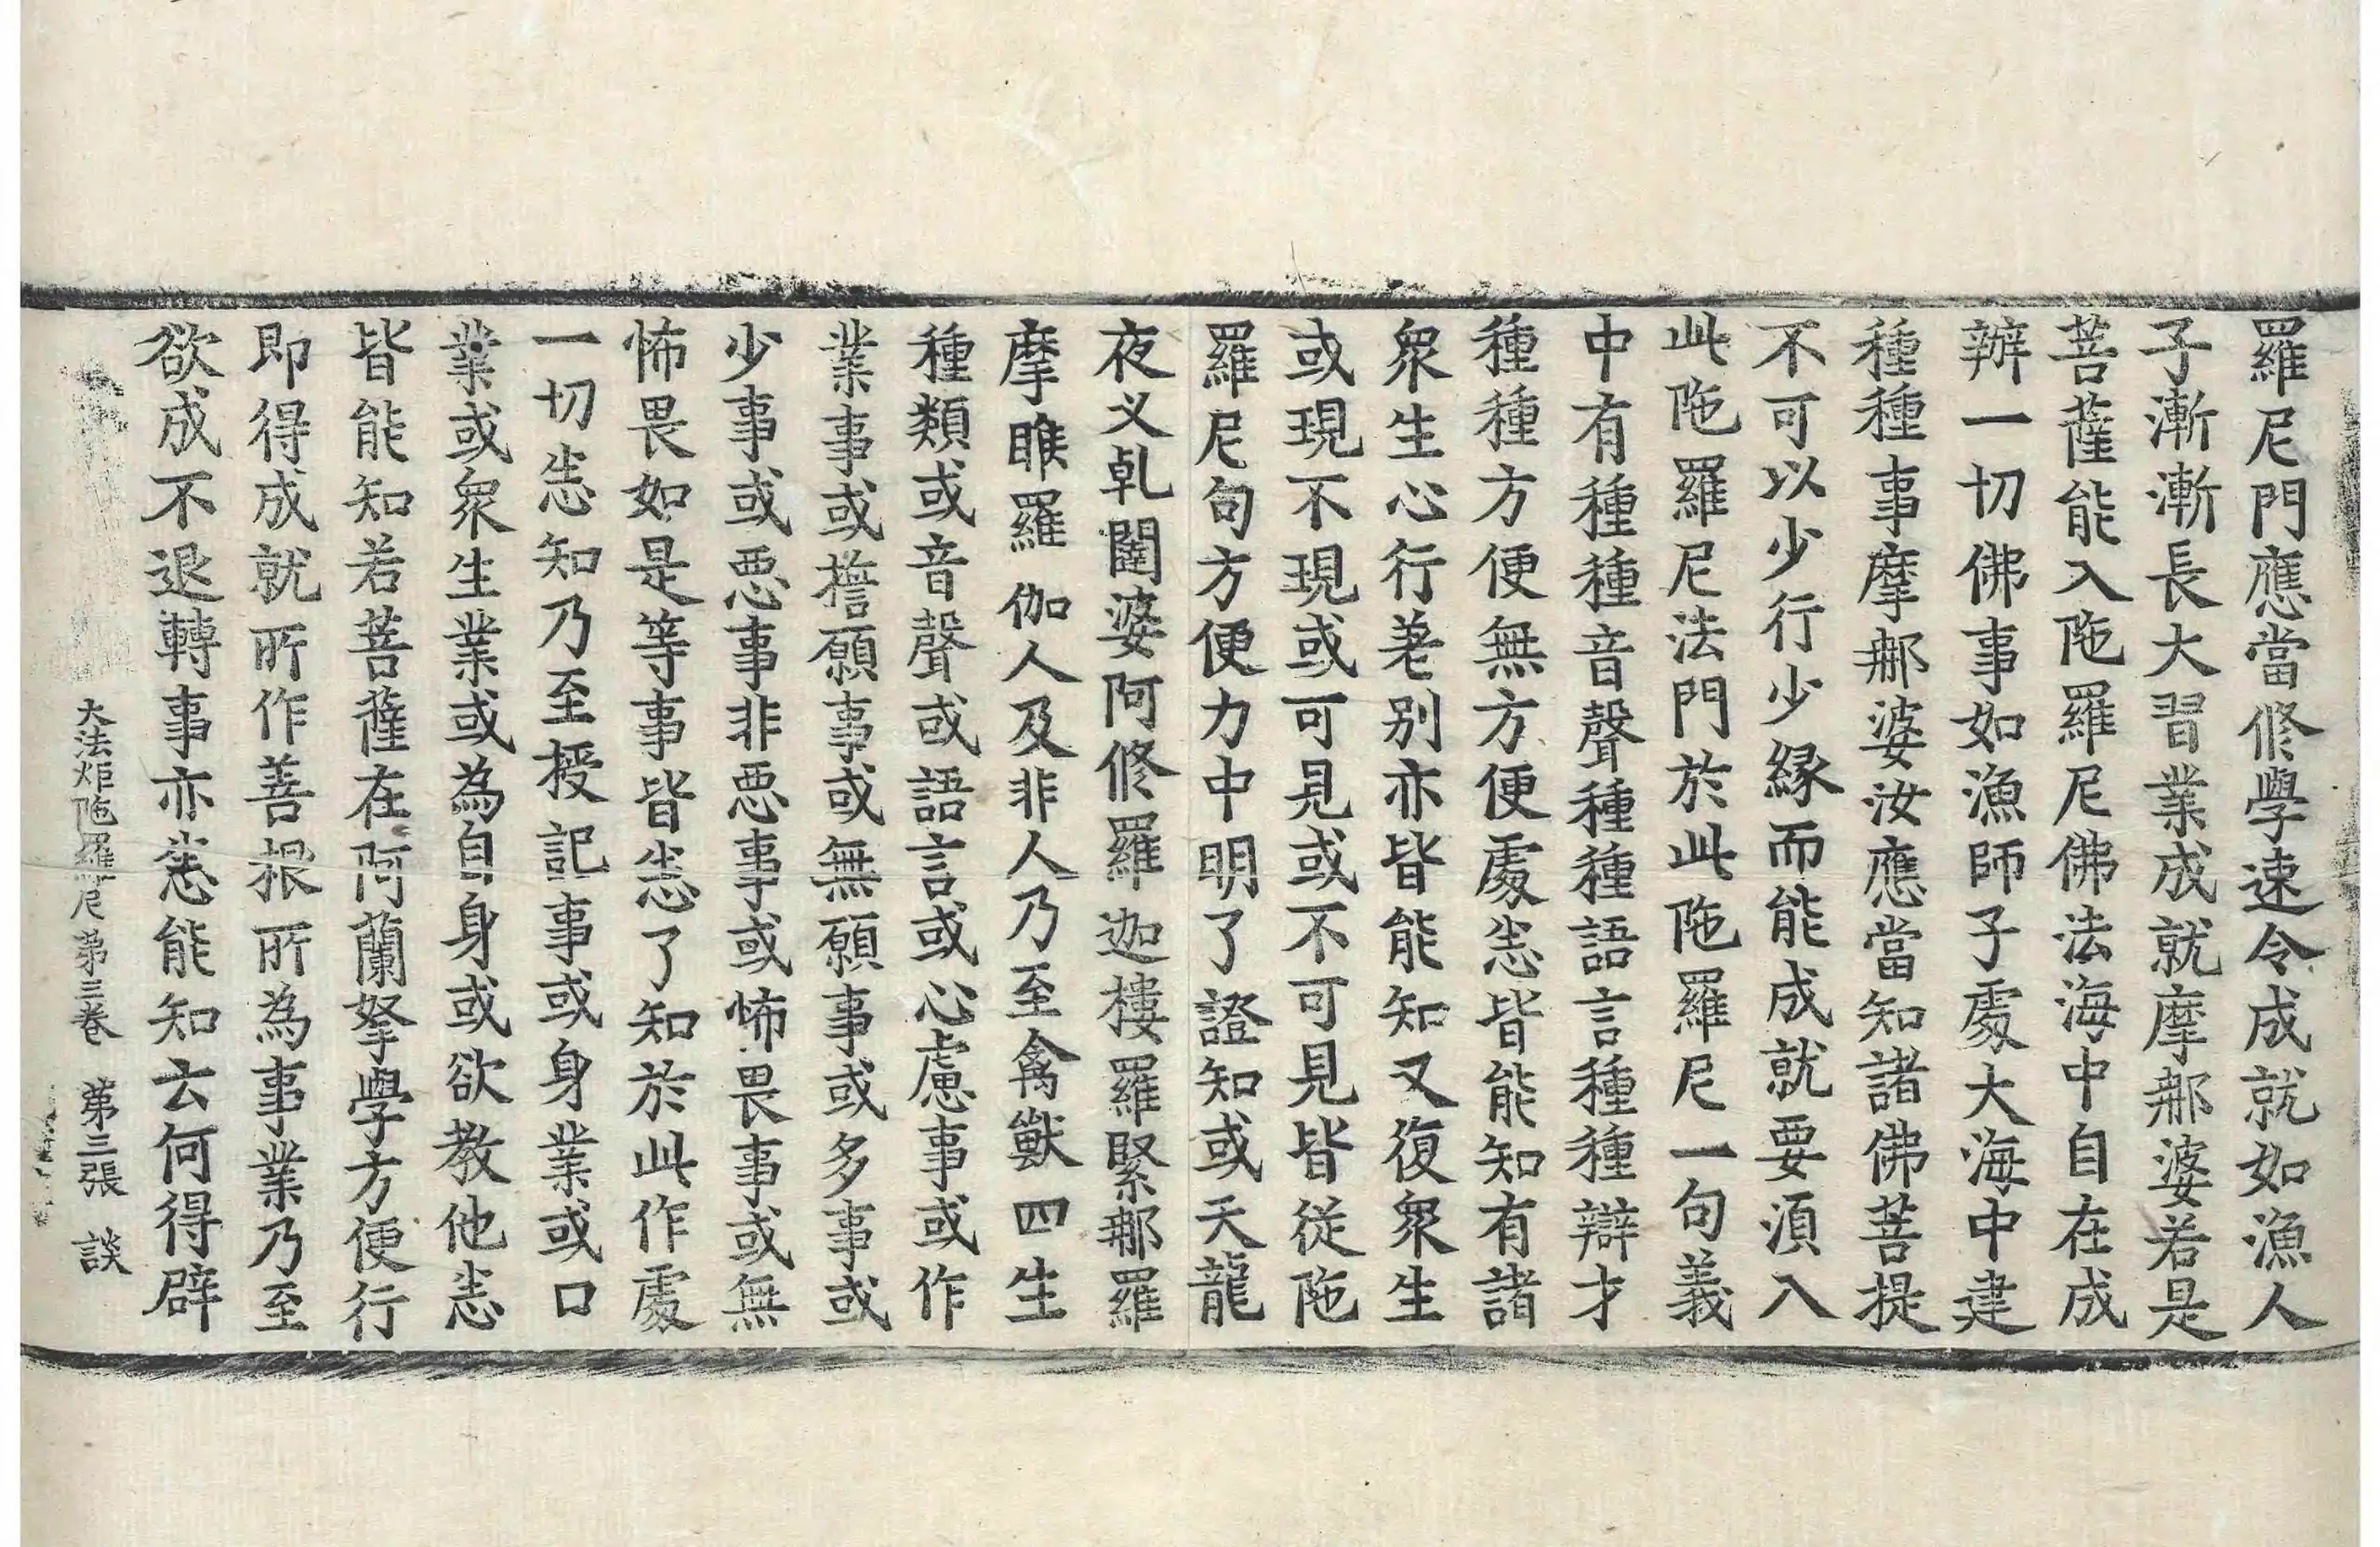 羅尼門應當修學速令成就如漁人
子漸漸長大習業成就摩郍婆若是
菩薩能入陁羅尼佛法海中自在成
辦一切佛事如漁師子處大海中建
種種事摩郍婆汝應當知諸佛菩提
不可以少行少緣而能成就要湏入
此陁羅尼法門於此陁羅尼一句義
中有種種音聲種種語言種種辯才
種種方便無方便處悉皆能知有諸
衆生心行差別亦皆能知又復衆生
或現不現或可見或不可見皆從陁
羅尼句方便力中明了證知或天龍
夜叉乹闥婆阿修羅迦樓羅緊郍羅
摩睺羅伽人及非人乃至禽獸四生
種類或音聲或語言或心慮事或作
業事或擔願事或無願事或多事或
少事或惡事非惡事或怖畏事或無
怖畏如是等事皆悉了知於此作處
一切悉知乃至授記事或身業或口
業或衆生業或為自身或欲教他悉
皆能知若菩薩在阿蘭拏學方便行
即得成就所作善根所為事業乃至
欲成不退轉事亦悉能知云何得辟
大法炬陁羅尼第三卷 第三張 談